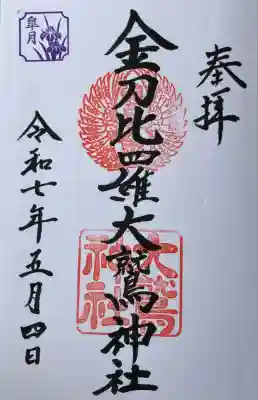 奉拝
金刀比羅大鷲神社
大鷲神社
令和七年五月四日
皐月